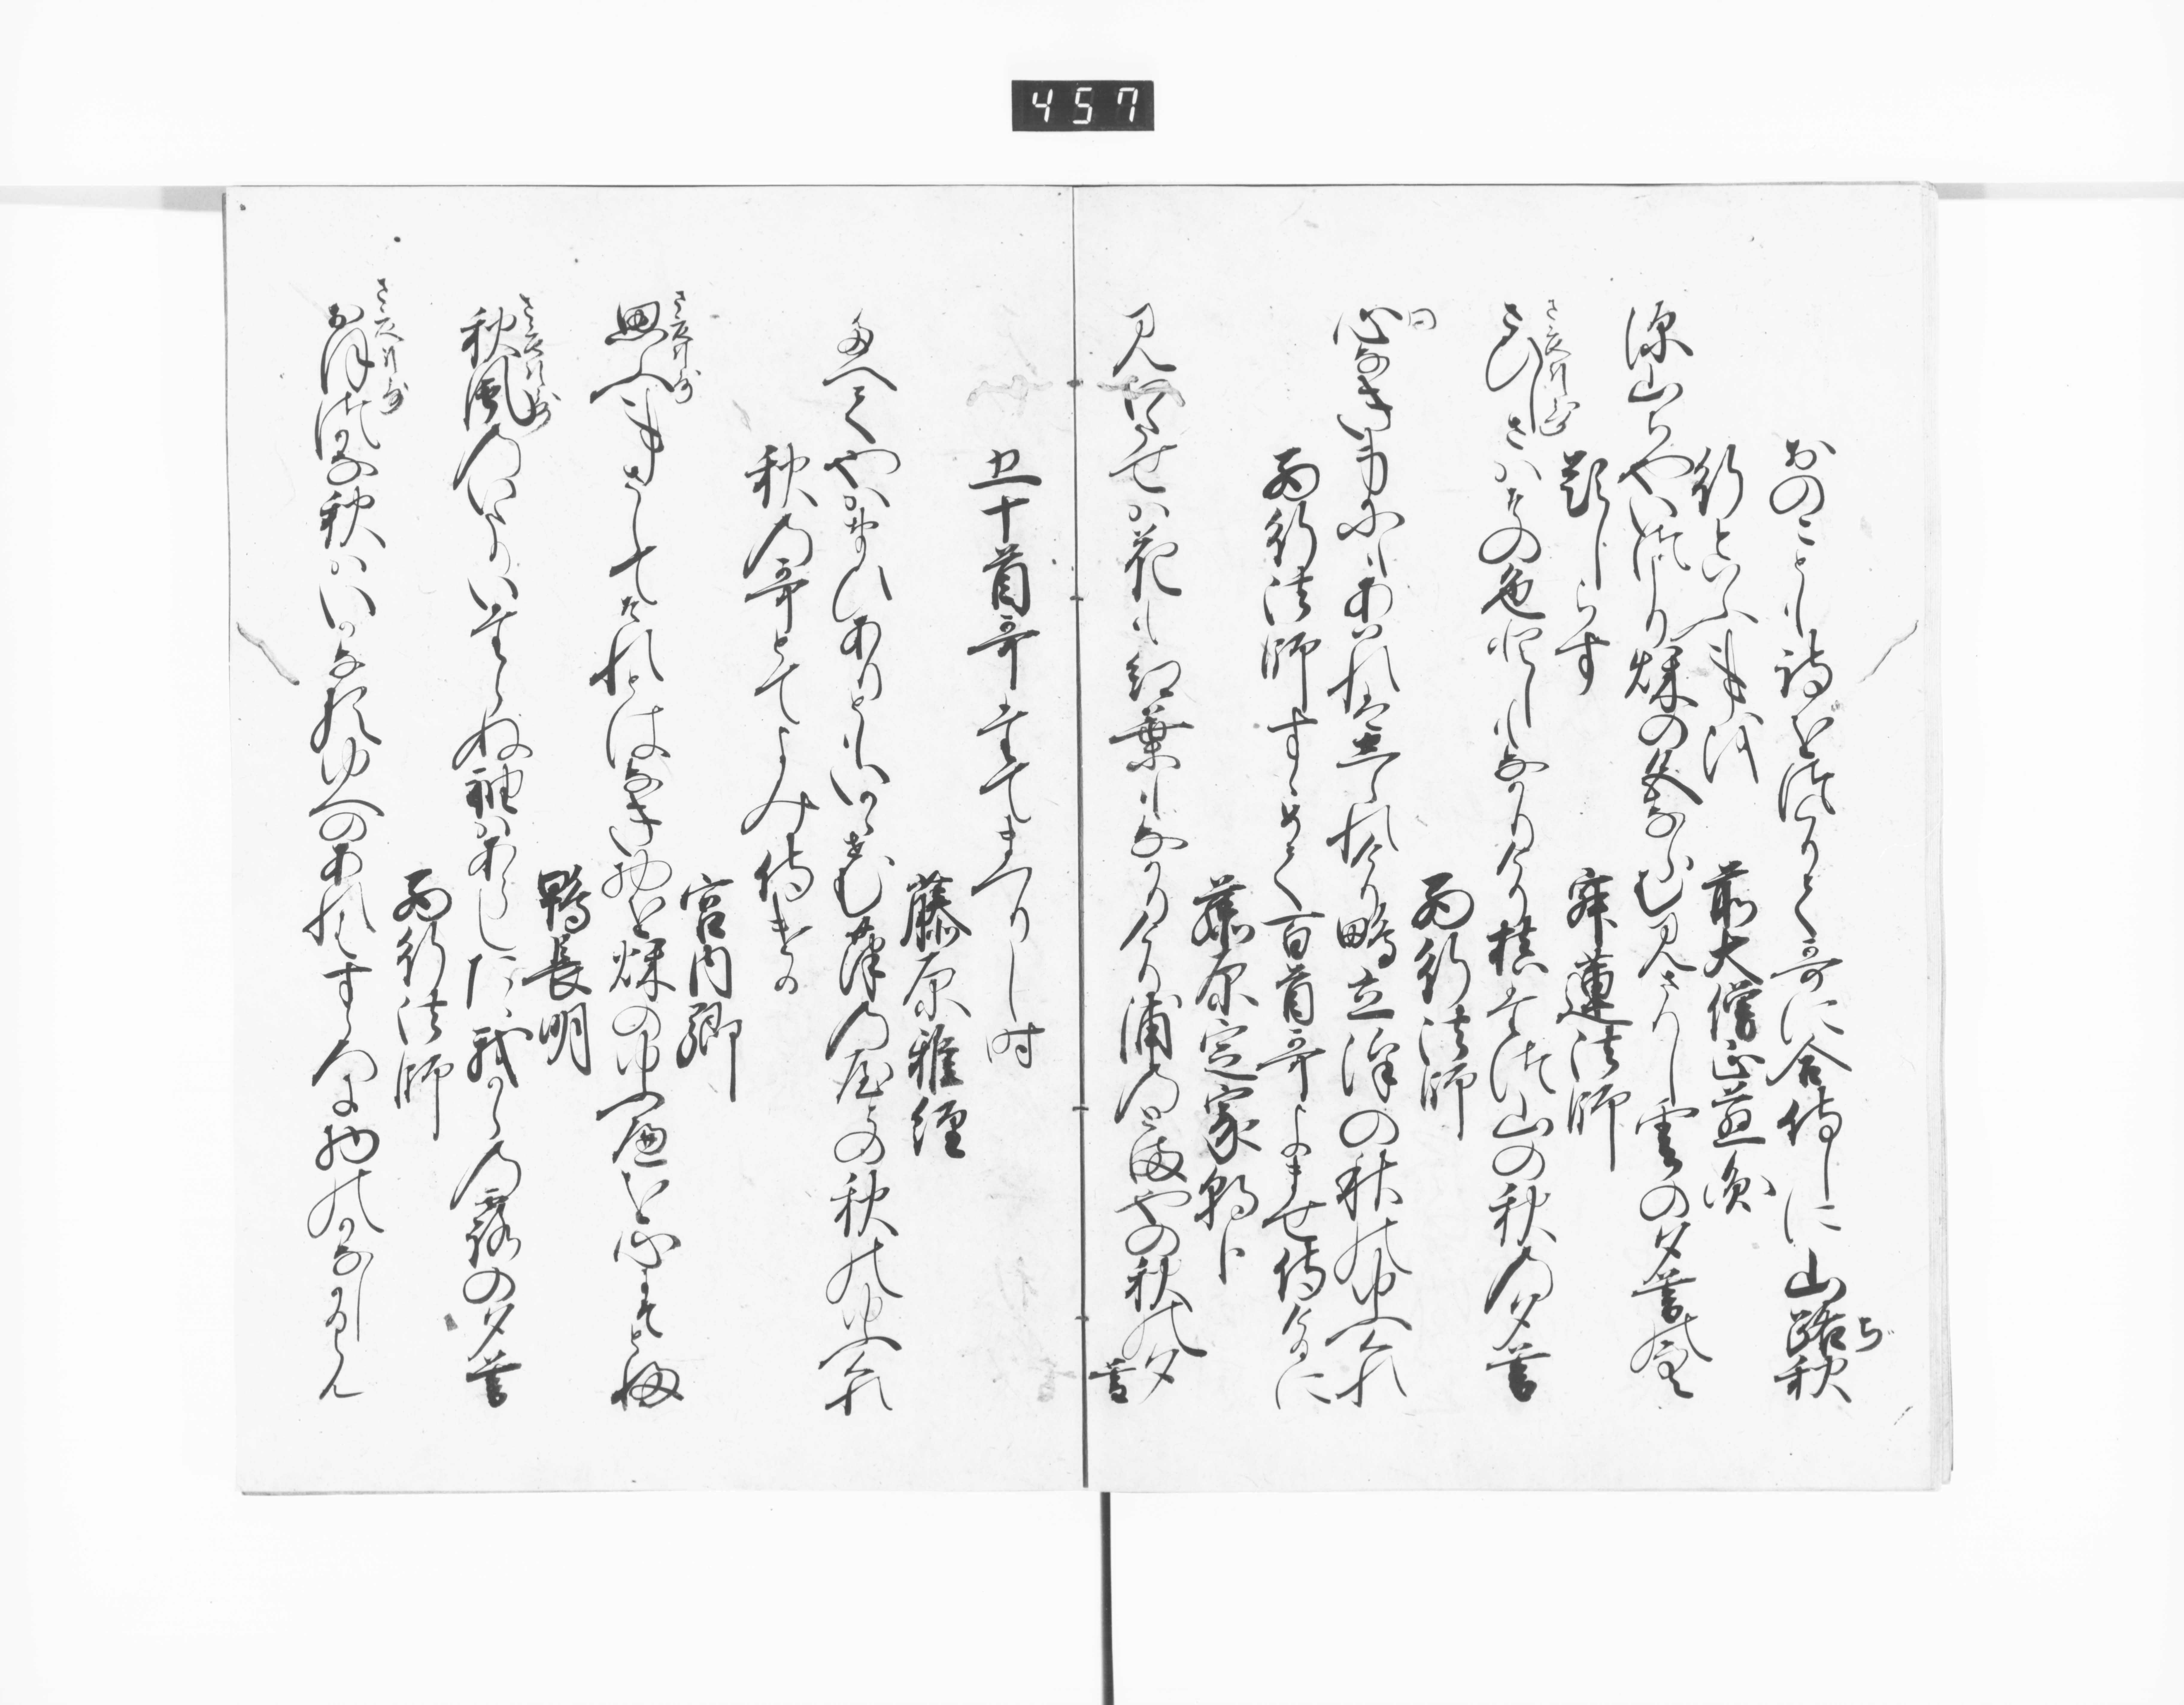 457
おのことも詩をつくりて哥に合侍しに山路秋
ぢ
行といふ事を
前大僧正慈円
深山ちやいつより秋の色ならむ見さりし雲の夕暮の空
題しらす
寂蓮法師
さひしさはその色としもなかりけり槙たつ山の秋の夕暮
西行法師
心なき身にもあはれはしられけり鴫立沢の秋の夕くれ
西行法師すゝめて百首哥よませ侍けるに
藤原定家朝臣
見わたせは花も紅葉もなかりけり浦のとまやの秋の夕暮
五十首哥たてまつりし時
藤原雅経
たへてやはおもひありともいかゝせむ葎の宿の秋の夕くれ
秋の哥とてよみ侍ける
宮内卿
思ふ事さしてそれとはなき物を秋の夕へを心にそとふ
鴨長明
秋風のいたりいたらぬ袖はあらしたゝ我からの露の夕暮
西行法師
おほつかな秋はいかなるゆへのあれはすゝろに物のかなしかるらん